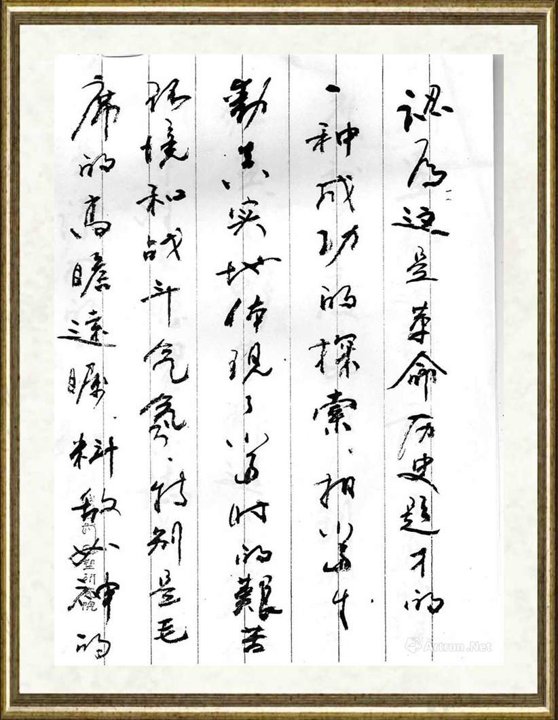 认为这是革命历史题才的
一种成功的探索、拍得生
動真实地体现了当时的艱苦
环境和战斗气氛、特别是毛
席的高瞻远瞩、料敌如神的
Artron.Net